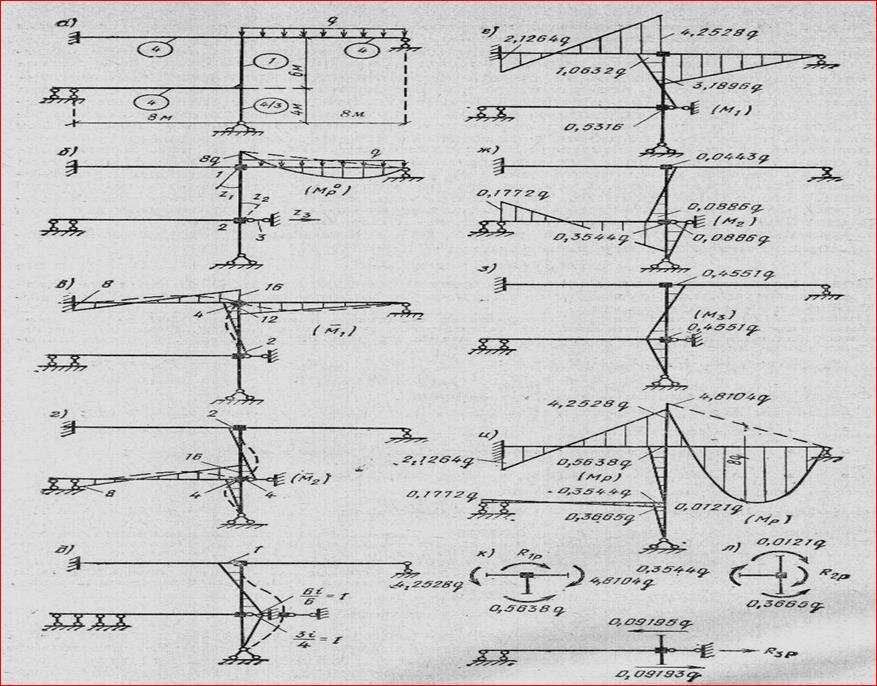 а)
q
4
1
4
6м
4
4/3
4м
8м
8м
б)
8q
q
1
(Mp°)
z1
z2
z3
2
3
в)
8
16
4
12
(M̄1)
2
г)
2
16
(M̄2)
8
4
4
д)
1
6i/6 = 1
3i/4 = 1
е)
2,1264q
4,2528q
1,0632q
3,1896q
(M1)
0,5316
ж)
0,0443q
0,1772q
0,0886q
(M2)
0,3544q
0,0886q
з)
0,4551q
(M3)
0,4551q
и)
4,2528q
4,8104q
2,1264q
0,5638q
8q
(Mp)
0,1772q
0,3544q
0,3665q
0,0121q
(Mp)
к)
R1p
4,2528q
4,8104q
0,5638q
л)
0,0121q
0,3544q
R2p
0,3665q
0,09195q
R3p
0,09193q